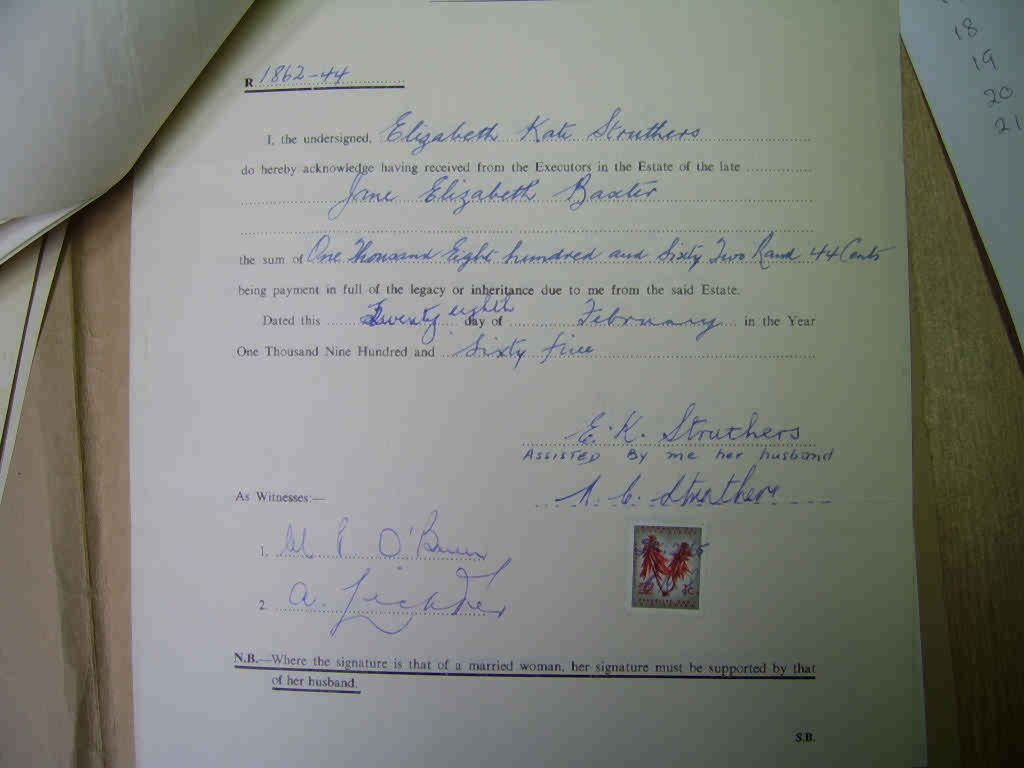 18
19
20
21
R 1862-44
I, the undersigned, Elizabeth Kate Struthers
do hereby acknowledge having received from the Executors in the Estate of the late
Jane Elizabeth Baxter
the sum of One Thousand Eight hundred and Sixty Two Rand 44 Cents
being payment in full of the legacy or inheritance due to me from the said Estate.
Dated this Twenty eighth day of February in the Year
One Thousand Nine Hundred and Sixty five
E. K. Struthers
ASSISTED By me her husband
Struthers
As Witnesses:—
1. O'Brien
2. a.
N.B.—Where the signature is that of a married woman, her signature must be supported by that
of her husband.
S.B.